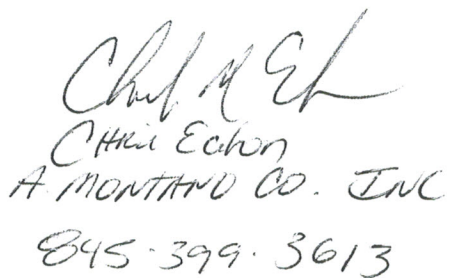 Chris Eaton
A. MONTANO CO. INC
845·399·3613